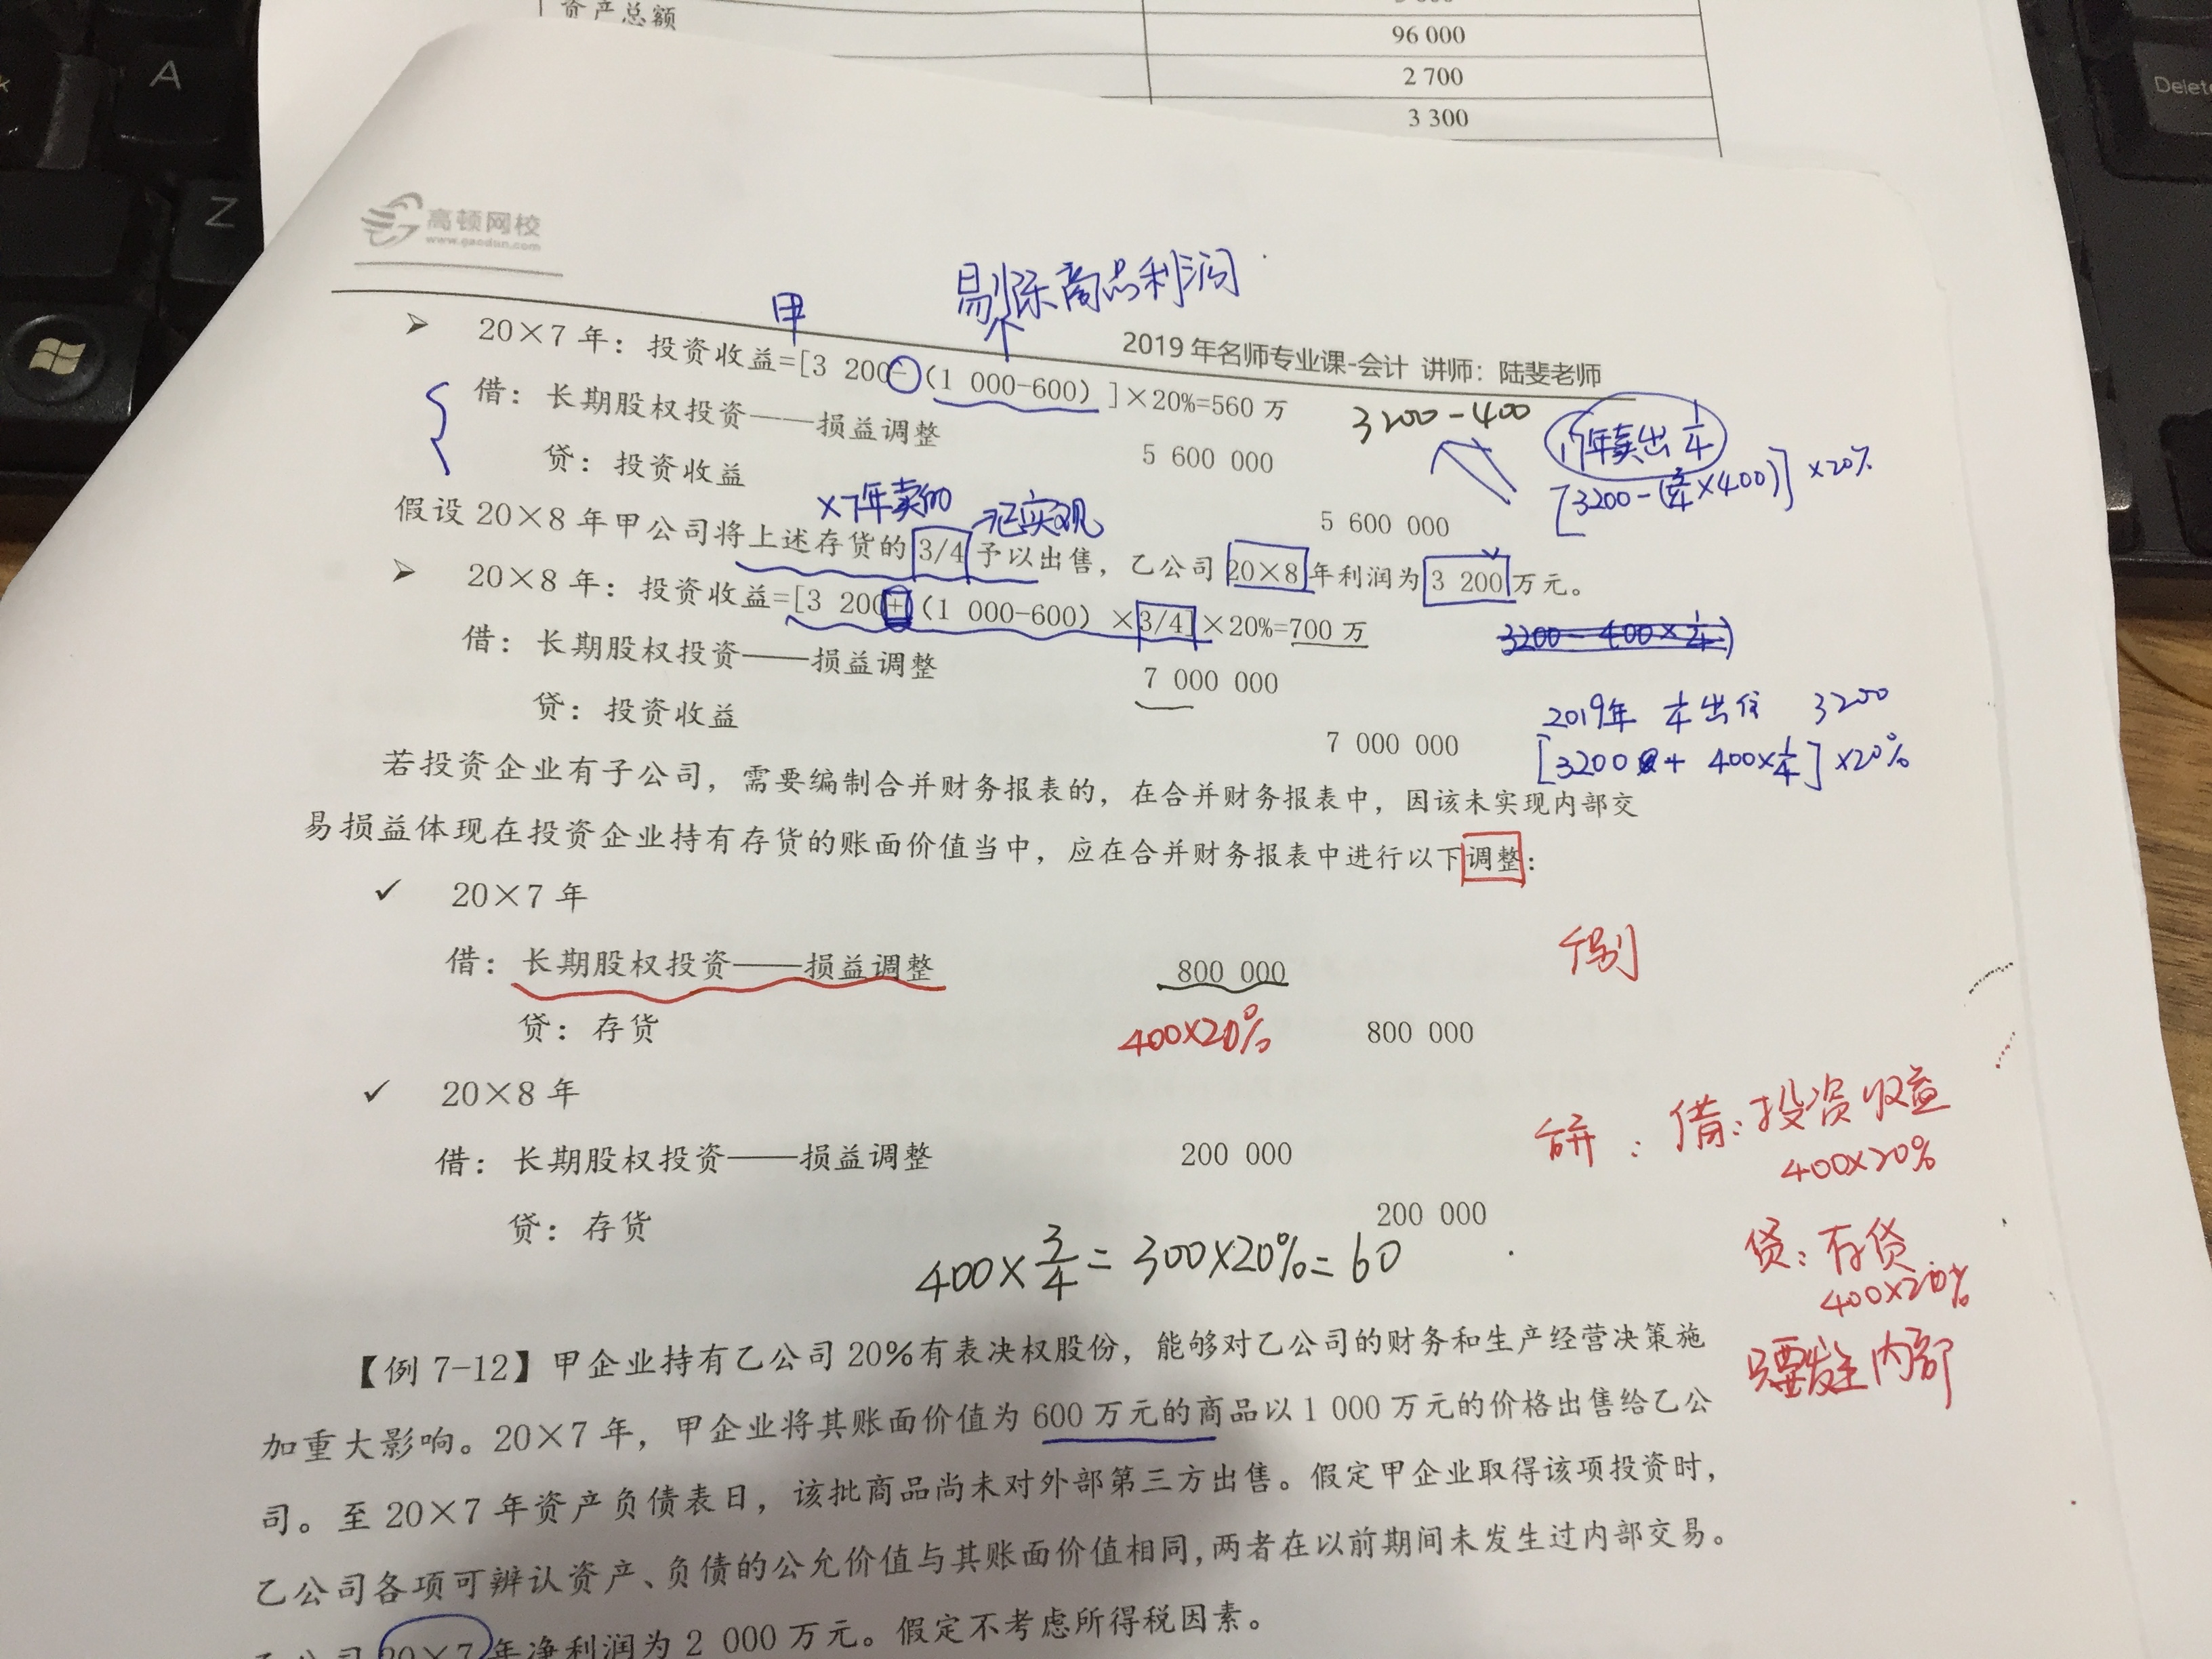 资产总额
96 000
2 700
3 300
A
Z
Delete
高顿网校
www.gaodun.com
甲
剔除商品利润
2019年名师专业课-会计 讲师：陆斐老师
➢ 20×7 年：投资收益=[3 200-（1 000-600）]×20%=560 万
借：长期股权投资——损益调整 5 600 000
贷：投资收益 5 600 000
3200-400
17年卖出 1/4
[3200-(3/4×400)]×20%
×7年卖的
已实现
假设 20×8 年甲公司将上述存货的 3/4 予以出售，乙公司 20×8 年利润为 3 200 万元。
➢ 20×8 年：投资收益=[3 200+（1 000-600）×3/4]×20%=700 万
借：长期股权投资——损益调整 7 000 000
贷：投资收益 7 000 000
3200-400×1/4)
2019年 1/4出售 3200
[3200+ 400×1/4]×20%
若投资企业有子公司，需要编制合并财务报表的，在合并财务报表中，因该未实现内部交
易损益体现在投资企业持有存货的账面价值当中，应在合并财务报表中进行以下调整：
✓ 20×7 年
借：长期股权投资——损益调整 800 000
贷：存货 800 000
400×20%
个别
✓ 20×8 年
借：长期股权投资——损益调整 200 000
贷：存货 200 000
400×3/4=300×20%=60
合并：借：投资收益
400×20%
贷：存货
400×20%
只要发生内部
【例 7-12】甲企业持有乙公司 20%有表决权股份，能够对乙公司的财务和生产经营决策施
加重大影响。20×7 年，甲企业将其账面价值为 600 万元的商品以 1 000 万元的价格出售给乙公
司。至 20×7 年资产负债表日，该批商品尚未对外部第三方出售。假定甲企业取得该项投资时，
乙公司各项可辨认资产、负债的公允价值与其账面价值相同，两者在以前期间未发生过内部交易。
乙公司 20×7 年净利润为 2 000 万元。假定不考虑所得税因素。